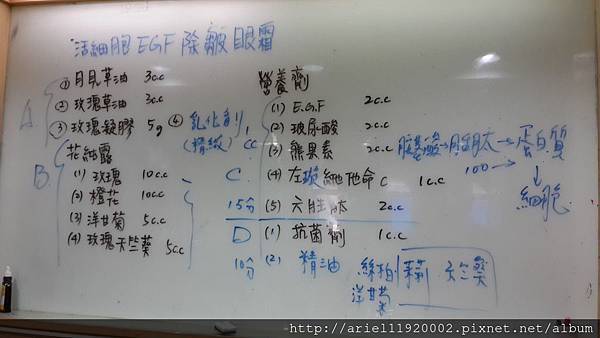 活細胞EGF除皺眼霜
A
① 月見草油 3c.c
② 玫瑰草油 3c.c
③ 玫瑰凝膠 5g ④ 乳化劑 1cc
(精緻)
B
花細露
(1) 玫瑰 10c.c
(2) 橙花 10c.c
(3) 洋甘菊 5c.c
(4) 玫瑰天竺葵 5c.c
營養劑
C
(1) E.G.F 2c.c
(2) 玻尿酸 2c.c
(3) 熊果素 2c.c
(4) 左璇維他命C 1c.c
(5) 六胜肽 2c.c
15分
D
(1) 抗菌劑 1c.c
10分
(2) 精油 絲柏 天竺葵
洋甘菊
胺基酸→月生月太→蛋白質
100→
↓
細胞
http://ariel11920002.pixnet.net/album